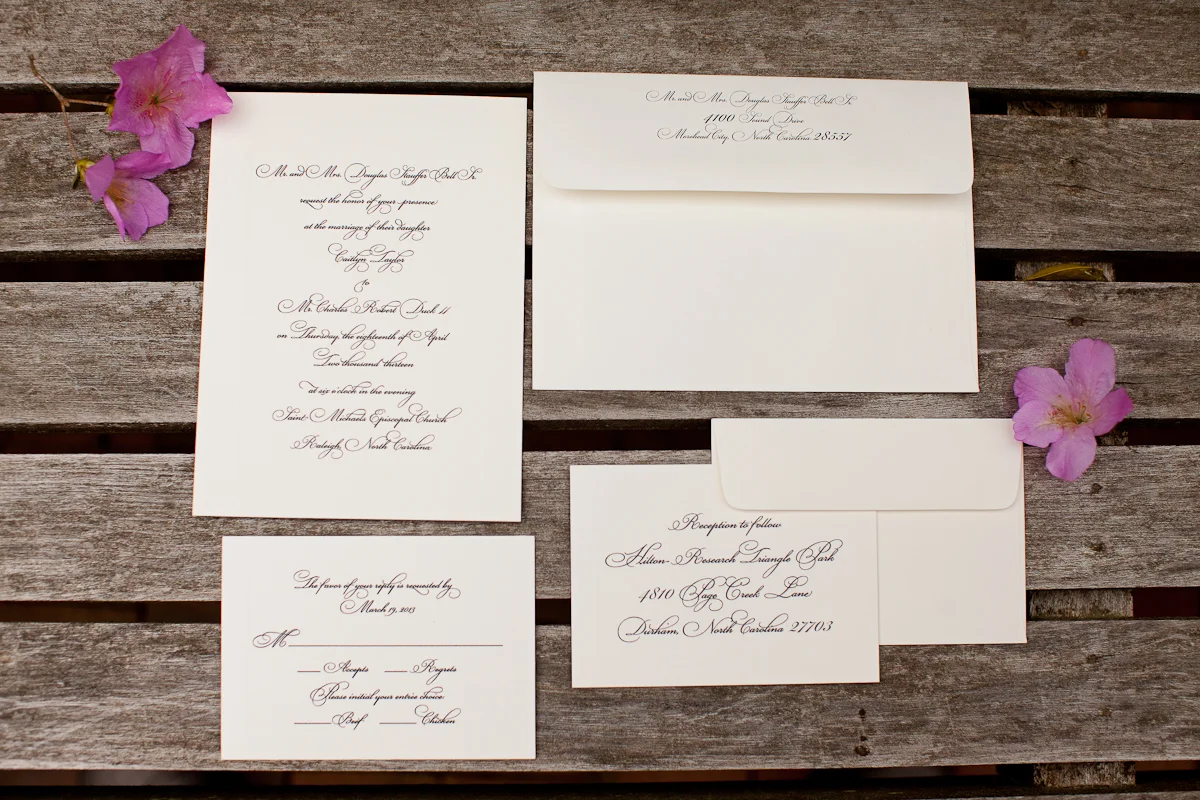 Mr. and Mrs. Douglas Stauffer Bell Sr.
request the honor of your presence
at the marriage of their daughter
Caitlyn Taylor
to
Mr. Charles Robert Duck II
on Thursday, the eighteenth of April
Two thousand thirteen
at six o'clock in the evening
Saint Michaels Episcopal Church
Raleigh, North Carolina
Mr. and Mrs. Douglas Stauffer Bell Sr.
4100 Sound Drive
Morehead City, North Carolina 28557
The favor of your reply is requested by
March 19, 2013
M
Accepts Regrets
Please initial your entrée choice:
Beef Chicken
Reception to follow
Hilton- Research Triangle Park
4810 Page Creek Lane
Durham, North Carolina 27703